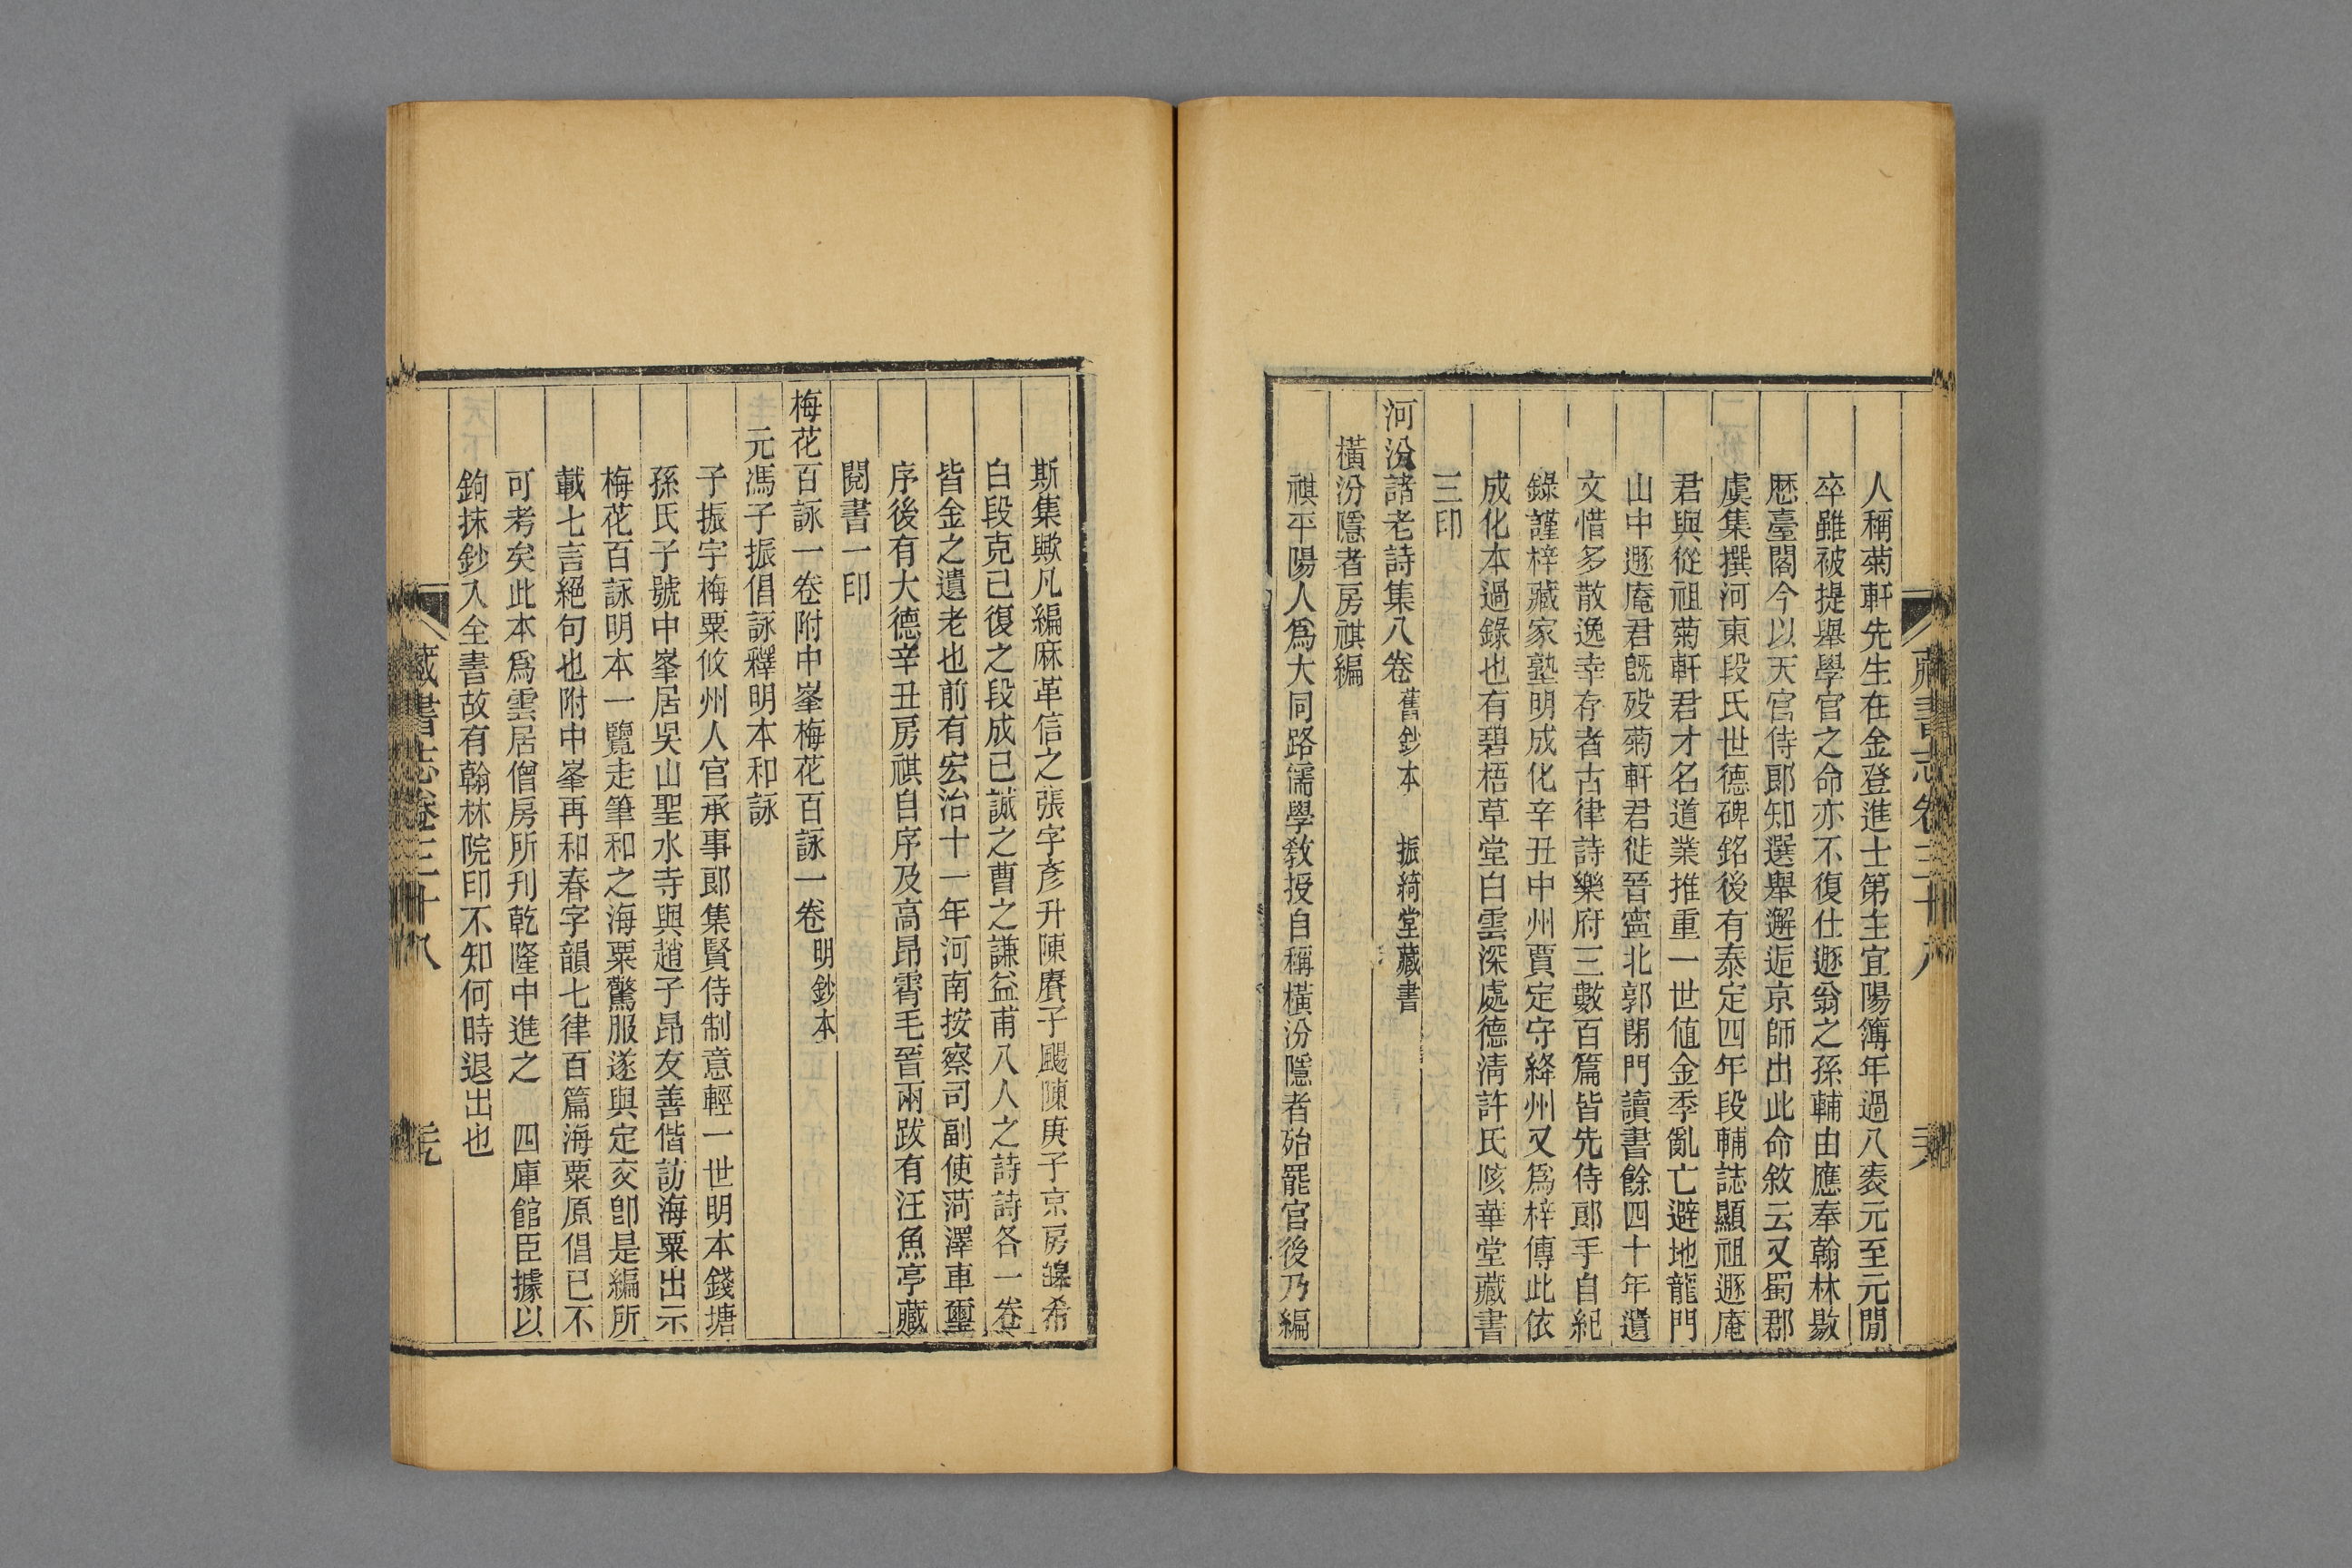 藏書志卷三十八
人稱菊軒先生在金登進士第主宜陽簿年過八袠元至元閒
卒雖被提舉學官之命亦不復仕遯翁之孫輔由應奉翰林敭
歷臺閣今以天官侍郎知選舉邂逅京師出此命敘云又蜀郡
虞集撰河東段氏世德碑銘後有泰定四年段輔誌顯祖遯庵
君與從祖菊軒君才名道業推重一世値金季亂亡避地龍門
山中遯庵君旣歿菊軒君徙晉寧北郭閉門讀書餘四十年遺
文惜多散逸幸存者古律詩樂府三數百篇皆先侍郎手自紀
錄謹梓藏家塾明成化辛丑中州賈定守絳州又爲梓傳此依
成化本過錄也有碧梧草堂白雲深處德淸許氏陔華堂藏書
三印
河汾諸老詩集八卷 舊鈔本 振綺堂藏書
橫汾隱者房祺編
祺平陽人爲大同路儒學敎授自稱橫汾隱者殆罷官後乃編
斯集歟凡編麻革信之張宇彥升陳賡子颺陳庾子京房皞希
白段克己復之段成己誠之曹之謙益甫八人之詩詩各一卷
皆金之遺老也前有宏治十一年河南按察司副使菏澤車璽
序後有大德辛丑房祺自序及高昂霄毛晉兩跋有汪魚亭藏
閱書一印
梅花百詠一卷附中峯梅花百詠一卷 明鈔本
元馮子振倡詠釋明本和詠
子振字梅粟攸州人官承事郎集賢侍制意輕一世明本錢塘
孫氏子號中峯居吳山聖水寺與趙子昂友善偕訪海粟出示
梅花百詠明本一覽走筆和之海粟驚服遂與定交卽是編所
載七言絕句也附中峯再和春字韻七律百篇海粟原倡已不
可考矣此本爲雲居僧房所刊乾隆中進之 四庫館臣據以
鉤抹鈔入全書故有翰林院印不知何時退出也
藏書志卷三十八